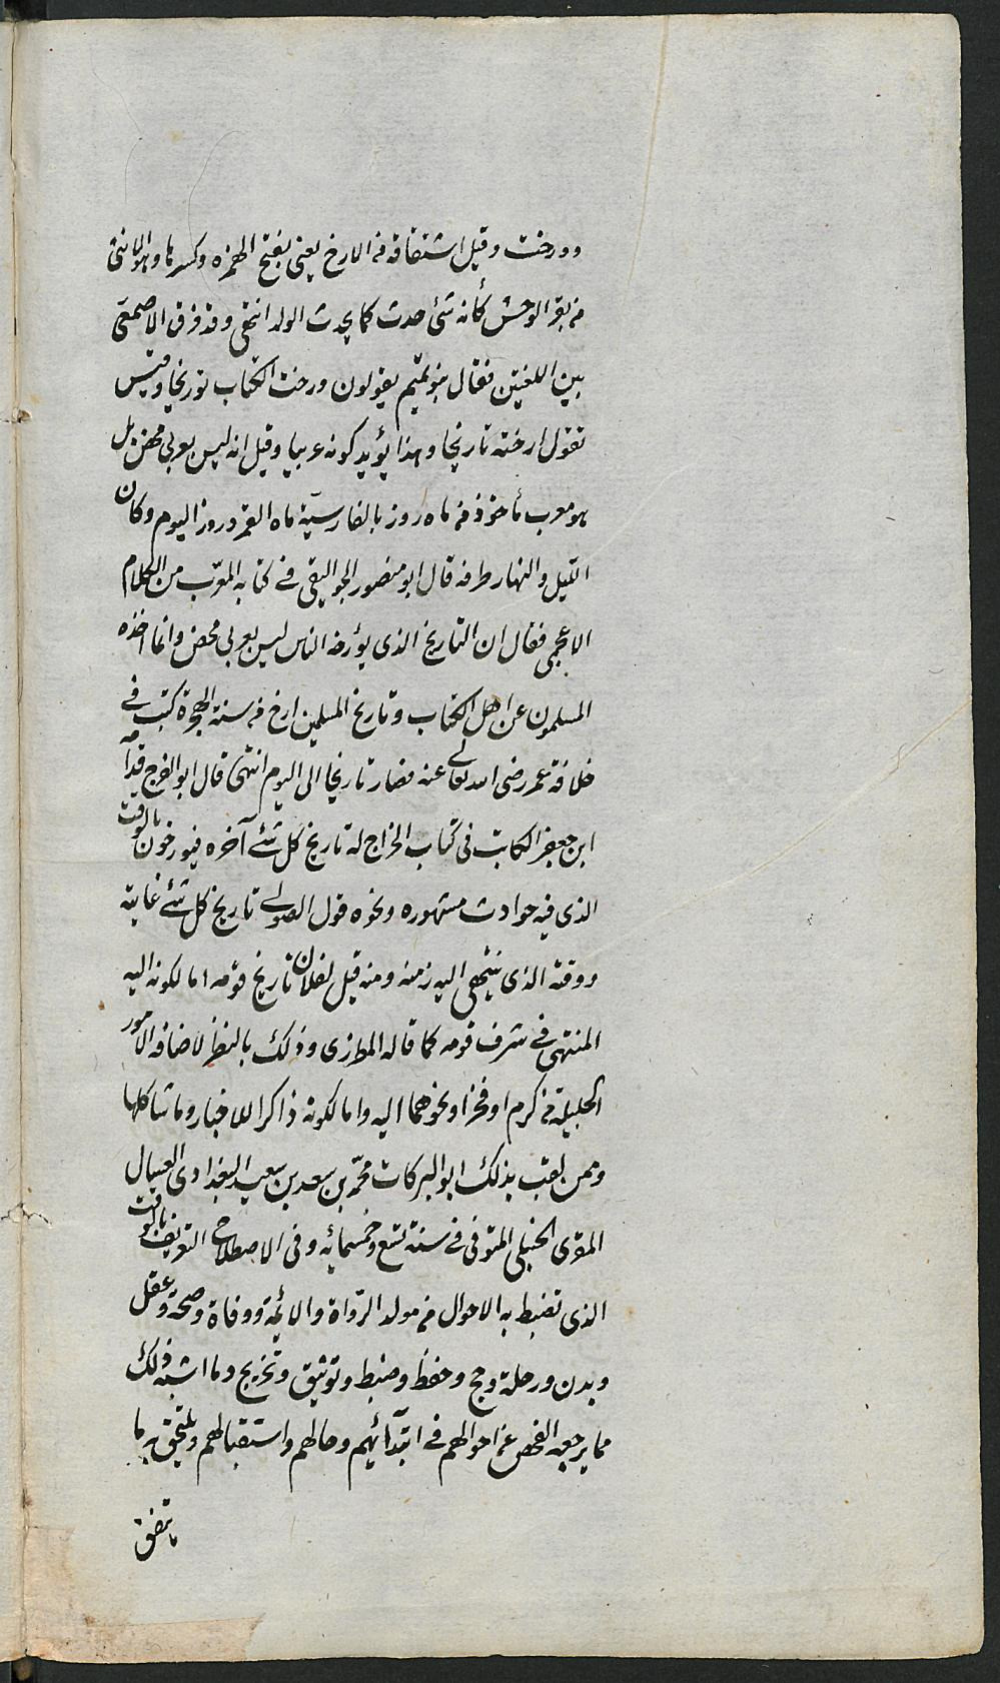 وورخت وقيل اشتقاقه من الارخ يعنى بفتح الهمزه وكسرها وهو الانثى
من بقر الوحش كأنه شئ حدث كما يحدث الولد انتهى وقد فرق الاصمعى
بين اللغتين فقال بنو تميم يقولون ورخت الكتاب توريخا وقيس
تقول ارخته تاريخا وهذا يؤيد كونه عربيا وقيل انه ليس بعربى محض بل
هو معرب مأخوذ من ماه روز بالفارسية ماه القمر وروز اليوم وكان
الليل والنهار طرفه قال ابو منصور الجواليقى فى كتابه المعرب من الكلام
الاعجمى فقال ان التاريخ الذى يؤرخه الناس ليس بعربى محض وانما اخذه
المسلمون عن اهل الكتاب وتاريخ المسلمين ارخ من سنة الهجرة كتب فى
خلافة عمر رضى الله تعالى عنه فصار تاريخا الى اليوم انتهى قال ابو الفرج قدامه
ابن جعفر الكاتب فى كتاب الخراج له تاريخ كل شئ آخره فيورخون بالوقت
الذى فيه حوادث مشهوره ونحوه قول الصولى تاريخ كل شئ غايته
ووقته الذى ينتهى اليه زمنه ومنه قيل لفلان تاريخ قومه اما لكونه اليه
المنتهى فى شرف قومه كما قاله المطرزى وذلك بالنظر لاضافه الامور
الجليلة من كرم او فخر او نحوهما اليه واما لكونه ذاكرا للاخبار وما شاكلها
وممن لقب بذلك ابو البركات محمد بن سعد بن سعيد البغدادى العسال
المقرى الحنبلى المتوفى فى سنة تسع وخمسمائه وفى الاصطلاح التعريف بالوقت
الذى تضبط به الاحوال من مولد الرواة والائمة ووفاة وصحة وعقل
وبدن ورحلة وحج وحفظ وضبط وتوثيق وتخريج وما اشبه ذلك
مما يرجعه الفحص عن احوالهم فى ابتدآئهم وحالهم واستقبالهم ويلتحق به ما
ما يتفق